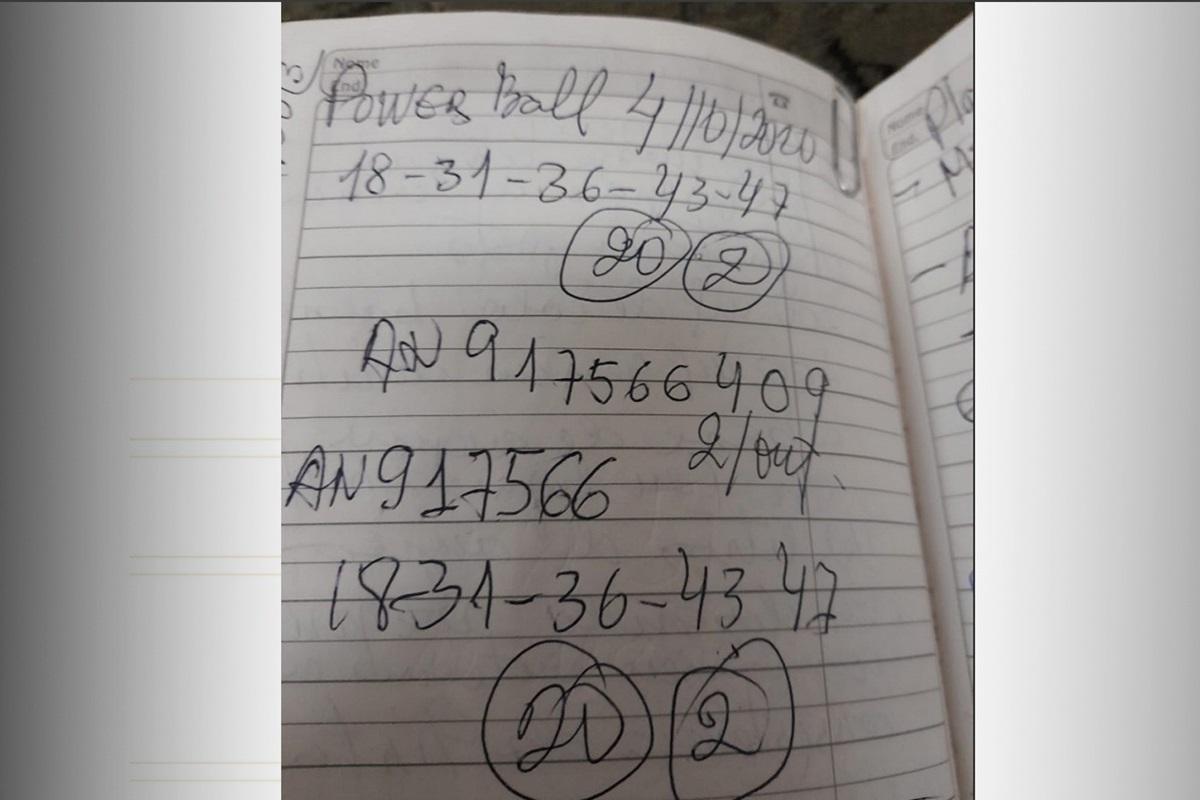 Name
End.
POWER Ball 4/10/2020
18-31-36-43-47
20 2
AN 917566409
2/out.
AN917566
18-31-36-43 47
20 2
Name
End.